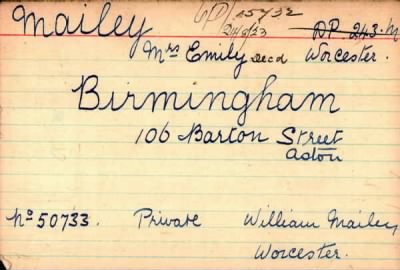 Mailey
6D/25732
24/9/33
DP 243.M
Mrs Emily Decd Worcester.
Birmingham
106 Barton Street
Aston
No 50733. Private William Mailey
Worcester.